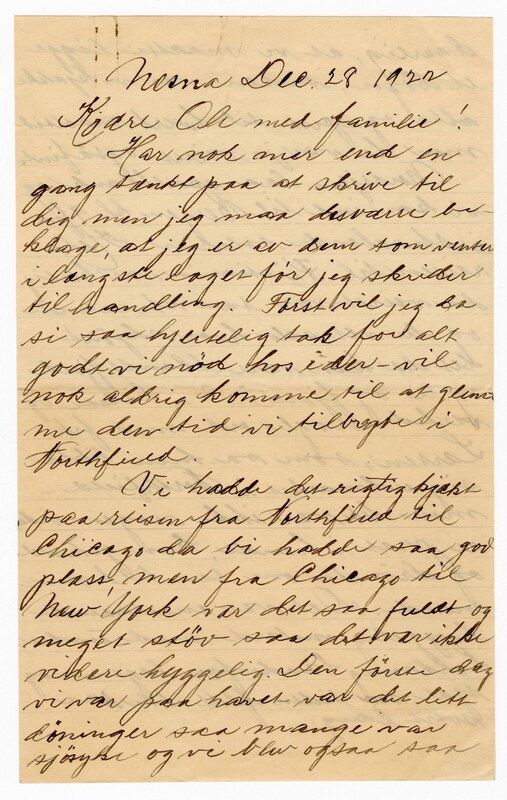 Nesna Dec. 28 1922
Kjære Ole med familie!
Har nok mer end en
gang tænkt paa at skrive til
dig men jeg maa desværre be-
klage, at jeg er av dem som venter
i længste laget før jeg skrider
til handling. Først vil jeg da
si saa hjertelig tak for alt
godt vi nød hos eder - vil
nok aldrig komme til at glem-
me den tid vi tilbragte i
Northfield.
Vi hadde det rigtig kjækt
paa reisen fra Northfield til
Chicago da vi hadde saa god
plass, men fra Chicago til
New York var det saa fuldt og
meget støv saa det var ikke
videre hyggelig. Den første dag
vi var paa havet var det litt
döninger saa mange var
sjösyke og vi blev ogsaa saa